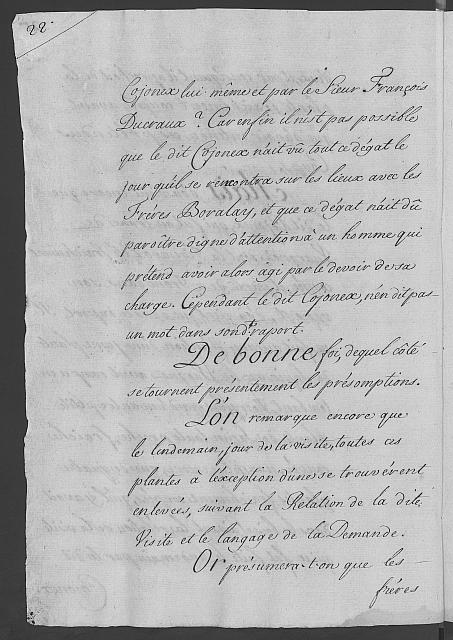 22.
Cojonex lui même et par le Sieur François
Ducraux? Car enfin il n'est pas possible
que le dit Cojonex n'ait vû tout ce dégat le
jour qu'il se rencontra sur les lieux avec les
Fréres Boralay, et que ce dégat n'ait dû
paroître digne d'attention à un homme qui
prétend avoir alors âgi par le devoir de sa
charge. Cépendant le dit Cojonex, n'en dit pas-
un mot dans son dt. raport.
De bonne foi, de quel côté
se tournent présentement les présomptions.
L'on remarque encore que
le lendemain, jour de la visite, toutes ces
plantes à l'éxception d'une se trouvérent
enlevées, suivant la Rélation de la dite
Visite et le langage de la Demande.
Or présumera-t-on que les
fréres